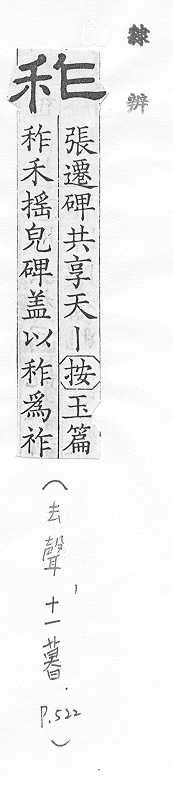 隸辨
秨
張遷碑共享天丨按玉篇
秨禾摇皃碑盖以秨爲祚
(去聲,十一暮.P.522)